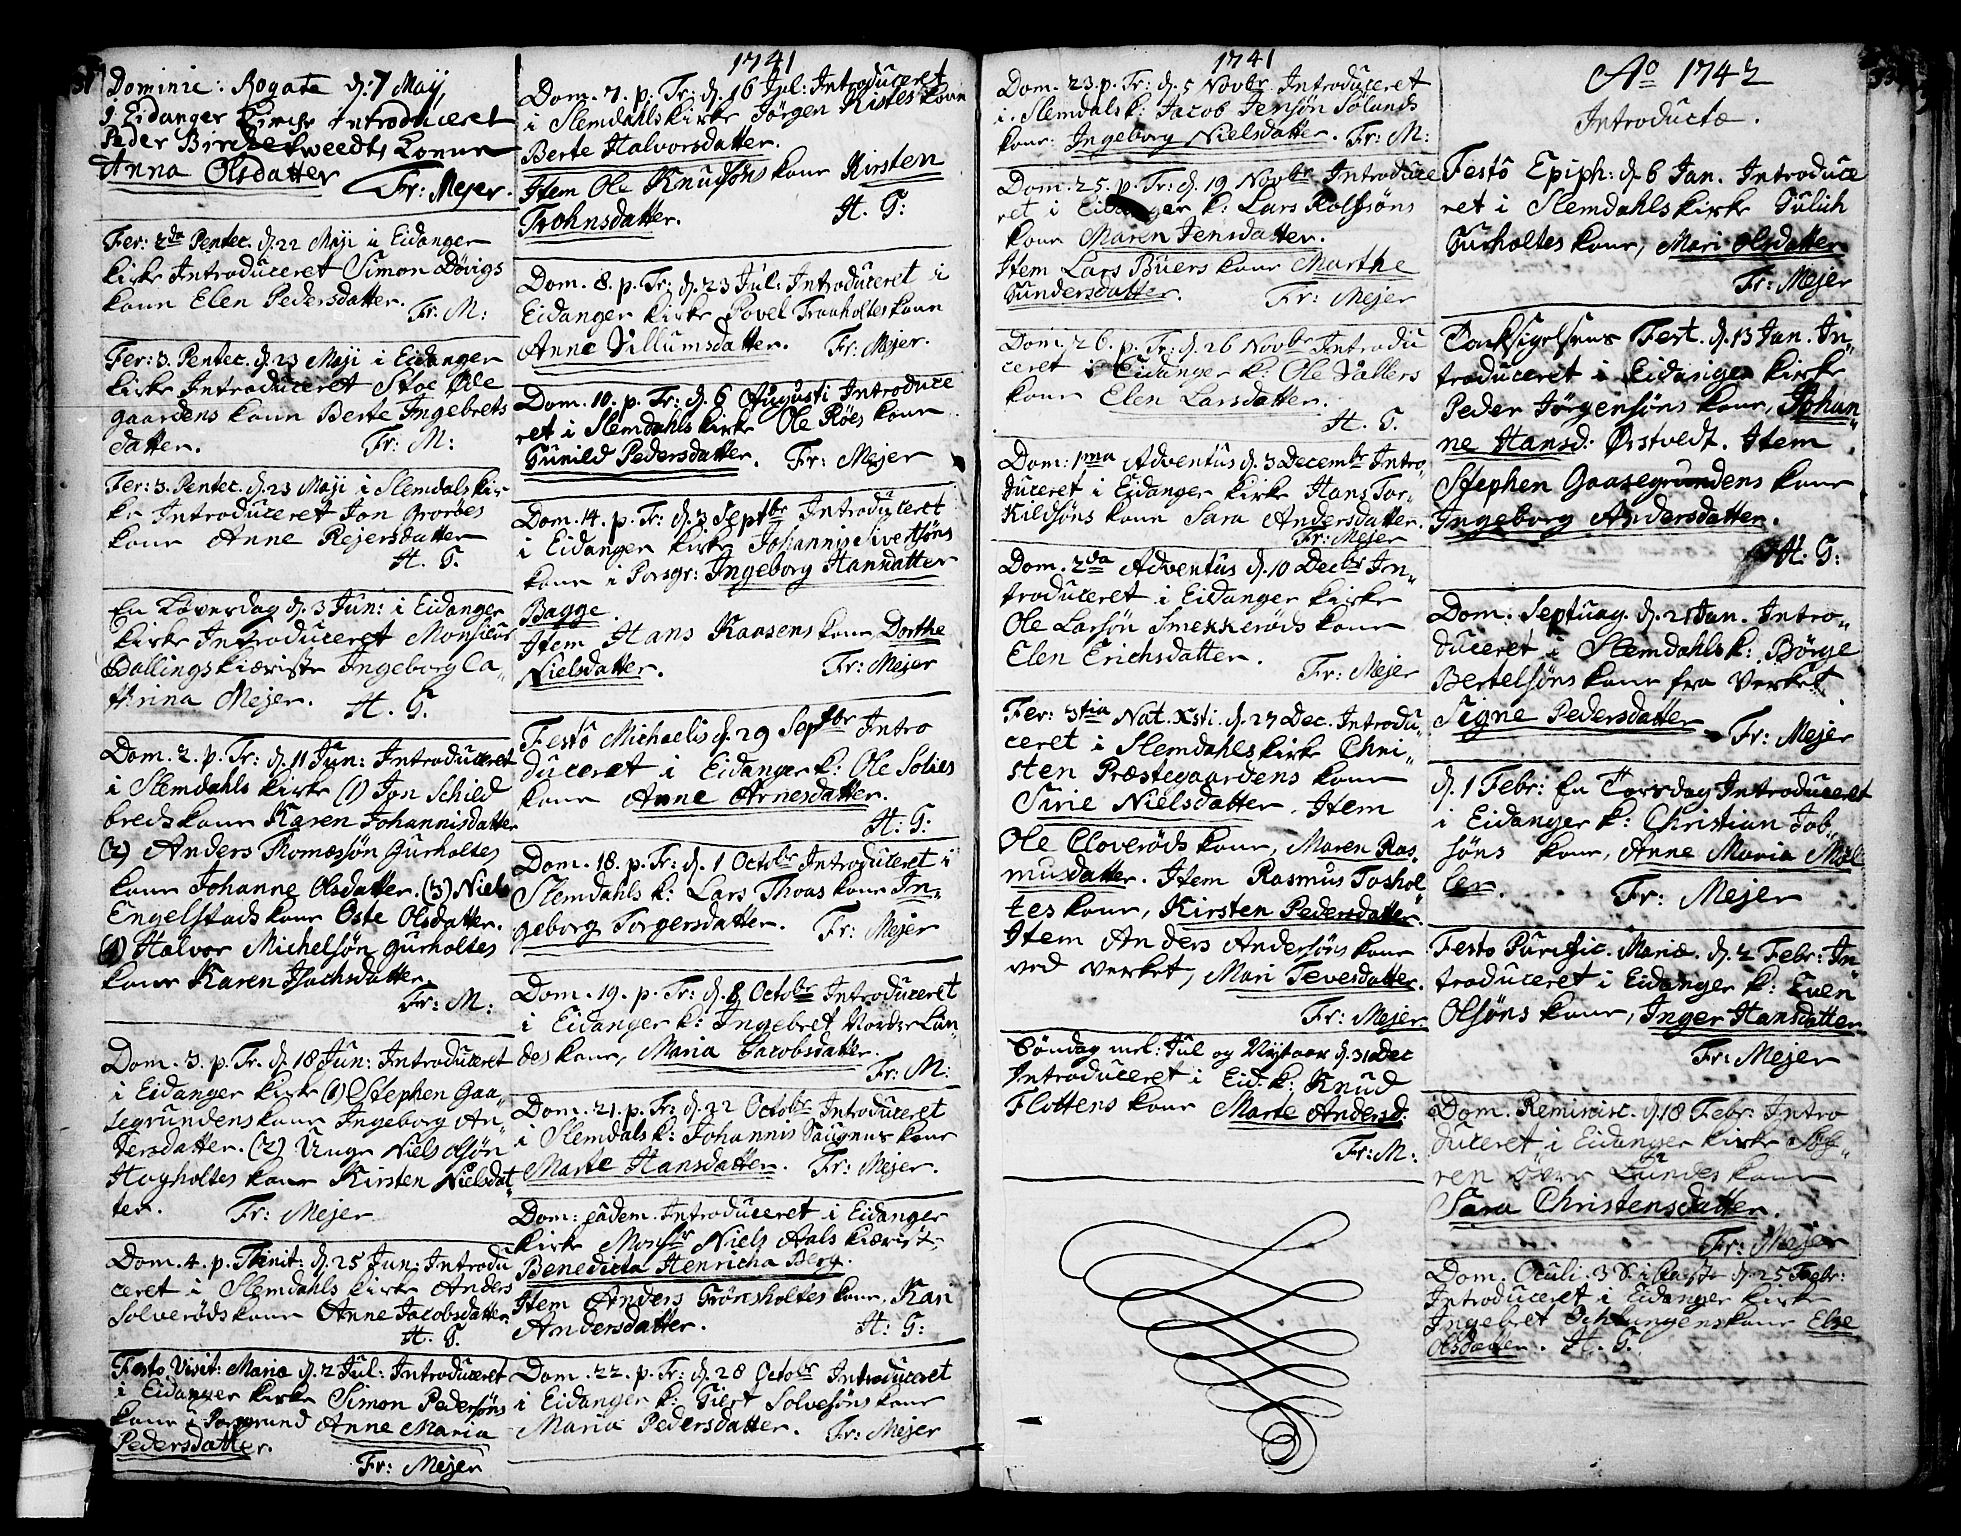 Dominic: Rogate d: 7 Maij,
i Eidanger Kirche Introduceret
Peder Birche Tweedts Konne
Anna Olsdatter
Fr: Mejer.
Fer: 2da Pentec. d. 22 Maji i Eidanger
kirke Introduceret Simon Dövigs
kone Elen Pedersdatter.
Fr: M:
Fer: 3. Pentec. d. 23 Maji i Eidanger
kirke Introduceret Stoe Öde
gaardens kone Berte Ingebrets
datter.
Fr: M:
Fer: 3. Pentec. d. 23 Maji i Slemdals kir
ke Introduceret Jon Grorbes
kone Anne Rejersdatter
H. G.
En Löverdag d. 3 Jun: i Eidanger
kirke Introduceret Monsieur
Ballings kiæriste Ingeborg Ca
thrina Mejer.
H. G.
Dom. 2. p. Tr: d. 11 Jun: Introduceret
i Slemdahls kirke (1) Jon Schild
breds kone Karen Johannisdatter
(2) Anders Thomessön Gurholtes
kone Johanne Olsdatter. (3) Niels
Engelstads kone Oste Olsdatter.
(4) Halvor Michelsön gurholtes
kone Karen Isachsdatter.
Fr: M:
Dom. 3. p. Tr. d. 18 Jun: Introduceret
i Eidanger kirke (1) Stephen Gaa„
segrundens kone Ingeborg An„
dersdatter. (2) Unge Niels Olsön
Hogholtes kone Kirsten Nielsdat„
ter.
Fr: Mejer
Dom. 4. p. Trinit: d. 25 Jun: Introdu
ceret i Slemdahls kirke Anders
Solveröds kone Anne Jacobsdatter
H. G.
Festo Visit: Mariæ d. 2 Jul: Introduceret
i Eidanger kirke Simon Pedersöns
kone i Porsgrund Anne Maria
Pedersdatter.
Fr: Mejer
1741
Dom. 7. p. Tr: d. 16 Jul: Introduceret
i Slemdahls kirke Jörgen Kistes kone
Berte Halvorsdatter.
Item Ole Knudsöns kone Kirsten
Trohnsdatter.
H. G:
Dom. 8. p. Tr: d. 23 Jul: Introduceret i
Eidanger kirke Povel Traaholtes kone
Anne Villumsdatter.
Fr: Mejer.
Dom. 10. p. Tr: d. 6 Augusti Introduce
ret i Slemdahls kirke Ole Röes kone
Gunild Pedersdatter.
Fr: Mejer
Dom. 14. p. Tr: d. 3 Septbr Introduceret
i Eidanger kirke Johanny Sivertsöns
kone i Porsgr: Ingeborg Hansdatter
Bagge.
Item Hans Kaasens kone Dorthe
Nielsdatter.
Fr: Mejer
Festo Michaelis d. 29 Septbr Intro
duceret i Eidanger k: Ole Solies
kone Anne Arnesdatter.
H: G:
Dom. 18. p. Tr: d. 1 Octobr Introduceret i
Slemdahls k: Lars Thoas kone In„
geborg Torgersdatter.
Fr: Mejer
Dom. 19. p. Tr: d. 8 Octobr Introduceret
i Eidanger k: Ingebret Norder Lun„
des kone, Maria Jacobsdatter.
Fr: M:
Dom. 21. p. Tr: d. 22 Octobr Introduceret
i Slemdals k: Johannis Saugnes kone
Marte Hansdatter.
Fr: Mejer.
Dom: eâdem. Introduceret i Eidanger
kirke Monsr Niels Aals kiæriste
Benedicta Henricha Berg.
Item Anders Grönsholtes kone, Kari
Andersdatter.
H: G:
Dom. 22. p. Tr: d. 28 Octobr Introduceret
i Eidanger k: Giert Solvesöns kone
Maria Pedersdatter.
Fr: Mejer
1741
Dom. 23. p. Tr: d. 5 Novbr Introduceret
i Slemdals k: Jacob Jensön Sölands
kone: Ingeborg Nielsdatter.
Fr: M:
Dom. 25. p. Tr: d. 19 Novbr Introduce
ret i Eidanger k: Lars Rolfsöns
kone Maren Jensdatter.
Item Lars Büers kone Marthe
Gundersdatter.
Fr: Mejer
Dom. 26. p. Tr: d. 26 Novbr Introdu
ceret i Eidanger k: Ole Vallers
kone Elen Larsdatter.
H. G.
Dom: 1ma Adventus d. 3 Decembr Intro„
duceret i Eidanger kirke Hans Tor„
kildsöns kone Sara Andersdatter.
Fr: Mejer
Dom. 2da Adventus d. 10 Decbr In„
troduceret i Eidanger kirke
Ole Larsön Smekkeröds kone
Elen Erichsdatter.
Fr: Mejer
Fer: 3tia Nat. Xsti. d. 27 Dec. Introdu„
ceret i Slemdahls kirke Chri„
sten Præstegaardens kone
Sirie Nielsdatter. Item
Ole Cloveröds kone, Maren Ras„
musdatter. Item Rasmus Toshol
tes kone, Kirsten Pedersdatter.
Item Anders Andersöns kone
ved verket, Mari Tevesdatter.
Fr: Mejer
Söndag mel: Jul og Nytaar d. 31 Dec
Introduceret i Eid. k: Knud
Flottens kone Marte Andersd.
Fr: M:
Ao 1742
Introductæ.
Festô Epiph: d. 6 Jan. Introduce
ret i Slemdahls kirke Gulich
Gurholtes kone, Mari Olsdatter
Fr: Mejer
Taksigelsens Fest. d. 13 Jan. In„
troduceret i Eidanger kirke
Peder Jörgensöns kone, Johan„
ne Hansd: Örstvedt. Item
Stephen Gaasegrundens kone
Ingeborg Andersdatter.
H. G:
Dom. Septuag. d. 21 Jan. Intro„
duceret i Slemdahls k: Börge
Bertelsöns kone fra Verket
Signe Pedersdatter
Fr: Mejer
d. 1 Febr: En Torsdag Introduceret
i Eidanger k: Christian Job„
söns kone, Anne Maria Möl
ler.
Fr: Mejer
Festo Purific. Mariæ. d. 2 Febr: In„
troduceret i Eidanger k: Even
Olsöns kone, Inger Hansdatter
Fr: Mejer
Dom. Reminisc. d. 18 Febr: Intro
duceret i Eidanger kirke Sör„
ren Över Lundes kone
Sara Christensdatter.
Fr: Mejer
Dom. Oculi. 3 S. i Faste d. 25 Febr:
Introduceret i Eidanger kirke
Ingebret Ochlungens kone Else
Olsdatter. H. G.